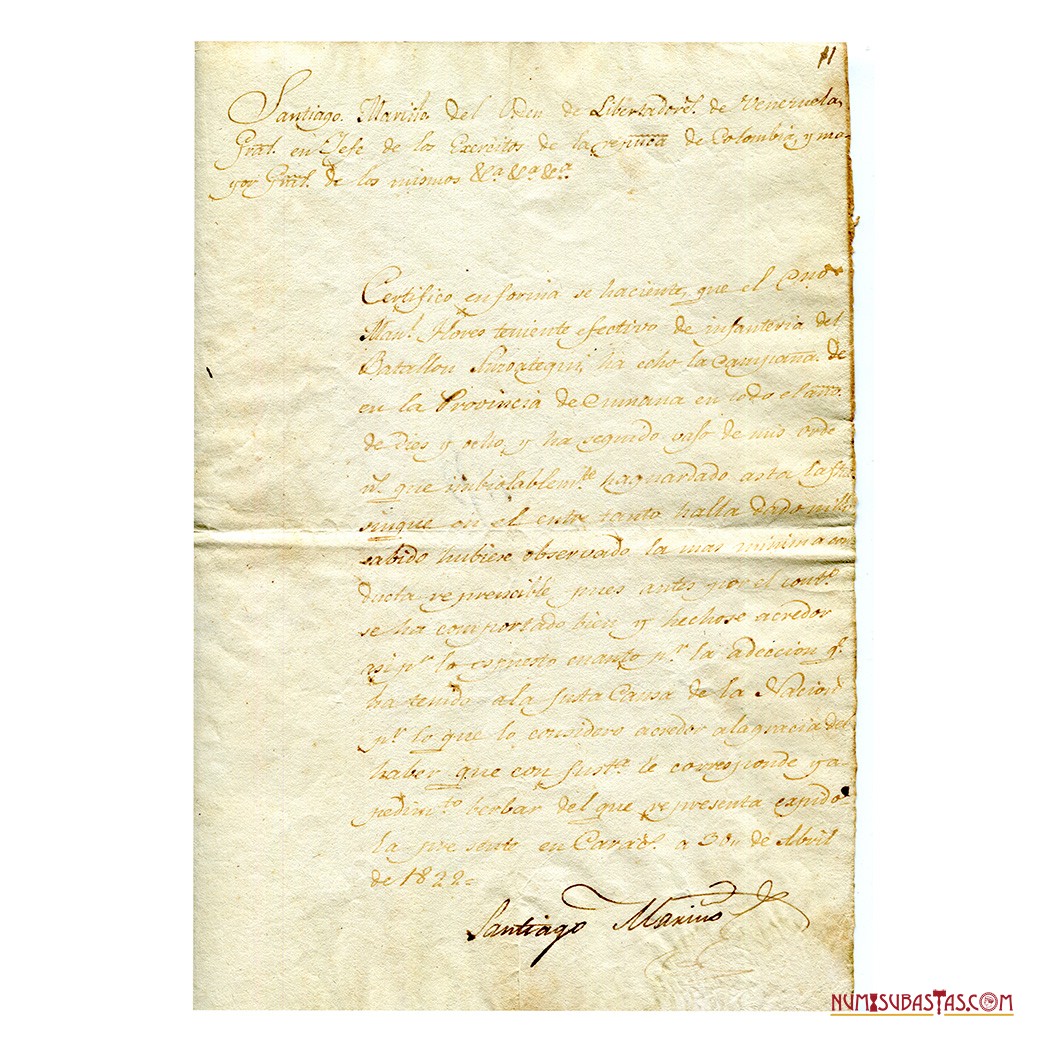 11
Santiago Mariño del Oden de Libertadores. de Venezuela,
Grãl. en Jefe de los Exercitos de la de Colombia, y ma-
yor Grãl. de los mismos &ª. &ª. &ª.
Certifico en forma se haciente, que el
Manl. teniente efectivo de infanteria del
Batallon ha la Campaña. de
en la Provincia de Cumana en todo el año.
de dies y ocho, y ha seguido vajo de mis orde
ns. que imbiolablemte. haguardado asta la
sinque en el entre tanto halla dado ni
sabido hubiese observado la mas minima con
ducta reprencible pues antes por el contº.
se ha comportado bien y hechose acredor
asi pr. lo espuesto cuanto pr. la adiccion q.
ha tenido ala Justa Causa de la Nacion
pr. lo que lo considero acredor ala gracia del
haber que con Justª. le corresponde y a
pedimto. berbar del que representa expido
la presente en Caracs. a 30,, de Abril
de 1822=
Santiago Mariño
NUMISUBASTAS.COM